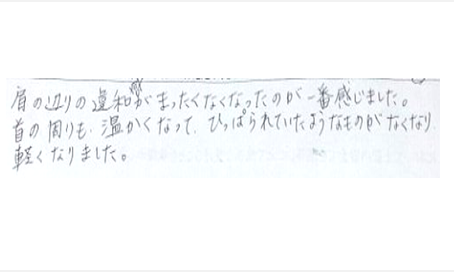 肩の辺りの違和感がまったくなくなったのが一番感じました。
首の周りも、温かくなって、ひっぱられていたようなものがなくなり
軽くなりました。